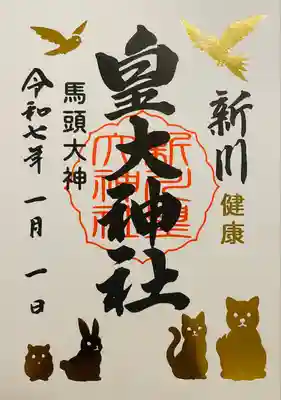 新川
健康
皇大神社
馬頭大神
令和七年 一月 一日
新川皇
大神社